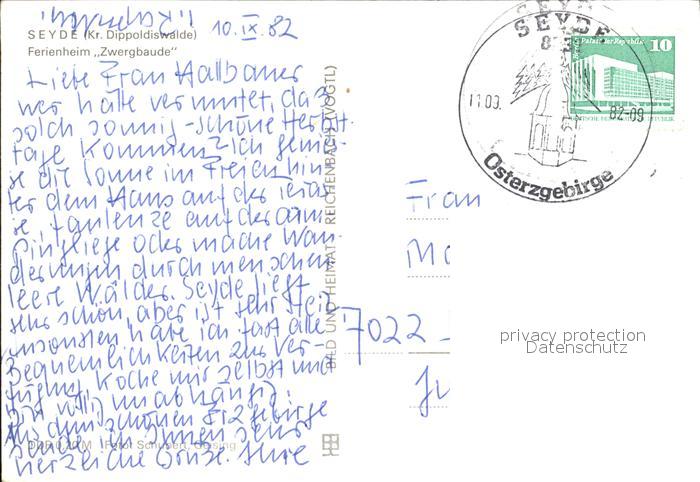 10.IX.82
SEYDE (Kr. Dippoldiswalde)
Ferienheim „Zwergbaude“
Liebe Frau Hallbauer
wer hätte vermutet, daß
solch sonnig-schöne Herbst-
tage kommen. Ich genie-
ße die Sonne im Freien hin-
ter dem Haus auf der Teras-
se, faulenze auf der
liege oder mache Wan-
derungen durch menschen-
leere Wälder. Seyde liegt
sehr schön, aber ist sehr steil
ansonsten habe ich fast alle
Bequemlichkeiten zur Ver-
fügung, koche mir selbst und
bin völlig unabhängig.
Aus dem schönen Erzgebirge
sende ich Ihnen sehr
herzliche Grüße. Ihre
BILD UND HEIMAT REICHENBACH (VOGTL)
Foto: Schubert,
SEYDE
11.09.
82-09
Osterzgebirge
Palast der Republik
10
Frau
7022
privacy protection
Datenschutz